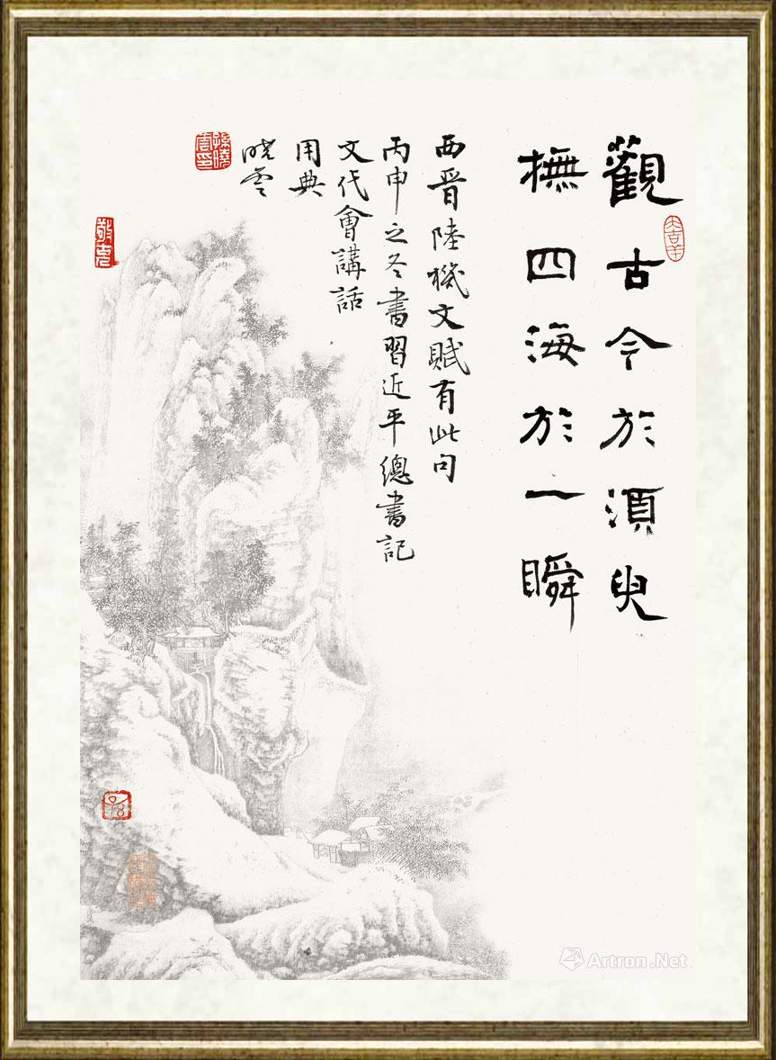 觀古今於須臾
撫四海於一瞬
西晋陸機文賦有此句
丙申之冬書習近平總書記
文代會講話
用典
曉雲
孫曉雲印
敬惠
Artron.Net